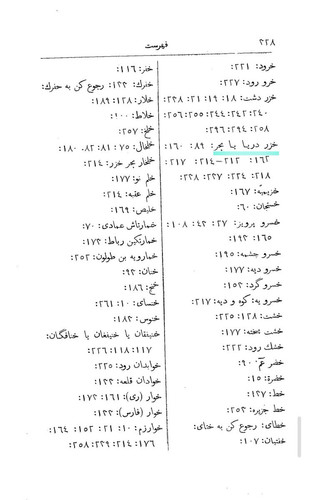 ۳۲۸
فهرست
خرود: ۲۲۱
خرو رود: ۲۲۷
خزر دشت: ۱۸؛ ۱۹؛ ۲۱؛ ۲۳۸؛
۲۴۰؛ ۲۴۲؛ ۲۴۴؛ ۲۵۵؛ ۲۵۶؛
۲۵۸؛ ۲۹۴؛ ۲۹۶
خزر دریا یا بحر: ۸۹؛ ۱۶۰؛
۱۶۲؛ ۲۱۲-۲۱۴؛ ۲۱۷؛
۲۱۸؛ ۲۲۴؛ ۲۲۷؛ ۲۳۸
خزیمیّه: ۱۶۷
خستجان: ۶۰
خسرو پرویز: ۲۷؛ ۴۳؛ ۱۰۸؛
۱۶۵؛ ۱۹۲
خسرو چشمه: ۱۹۵
خسرو دیه: ۱۷۷
خسرو گرد: ۱۵۳
خسرو یه: کوه و دیه: ۲۱۷
خشت: ۱۲۸؛ ۲۲۵
خشت پخته: ۱۷۷
خشك رود: ۲۲۲
خضر عم: ۹۰
خضرة: ۱۵
خط: ۱۳۷
خط جزیره: ۲۵۳
خطای: رجوع کن به ختای:
ختیان: ۱۰۷
خفر: ۱۱۶
خفرك: ۱۳۲؛ رجوع کن به حفرك:
خلار: ۱۲۸؛ ۱۸۹
خلاط: ۱۰۰
خلخ: ۲۵۷
خلخال: ۷۵؛ ۸۱؛ ۸۲؛ ۱۸۰
خلخار بحر خزر: ۲۱۴
خلم نو: ۱۷۷
خلم عقبه: ۲۱۴
خلیص: ۱۶۹
خمارتاش عمادی: ۷۰
خمارتکین رباط: ۱۷۳
خمارویه بن طولون: ۲۵۲
خنان: ۹۳
خنج: ۱۸۶
خنسای: ۱۰؛ ۲۶۱
خنوس: ۱۸۳
خنیفقان یا خنیفغان یا خنافگان:
۱۱۷؛ ۱۱۸؛ ۲۲۶
خوابدان رود: ۲۲۵
خوادان قلعه: ۱۳۲
خوار (ری): ۱۶۱؛ ۱۷۳
خوار (فارس): ۱۳۲
خوارزم: ۱۰؛ ۲۱؛ ۱۵۲؛ ۱۶۴؛
۱۷۶؛ ۲۱۴؛ ۲۳۹؛ ۲۵۸